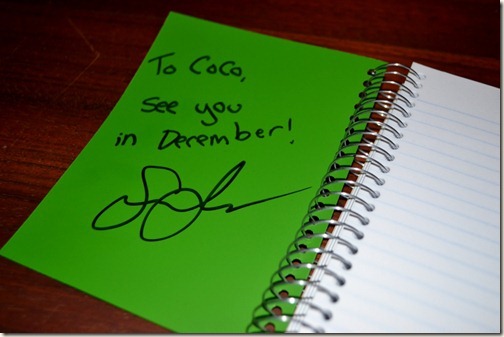 To Coco,
see you
in December!